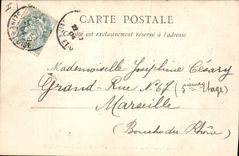 CARTE POSTALE
Ce côté est exclusivement réservé à l'adresse
Mademoiselle Joséphine Césary
Grand Rue N° 67 (5ième étage)
Marseille
(Bouches du Rhône)